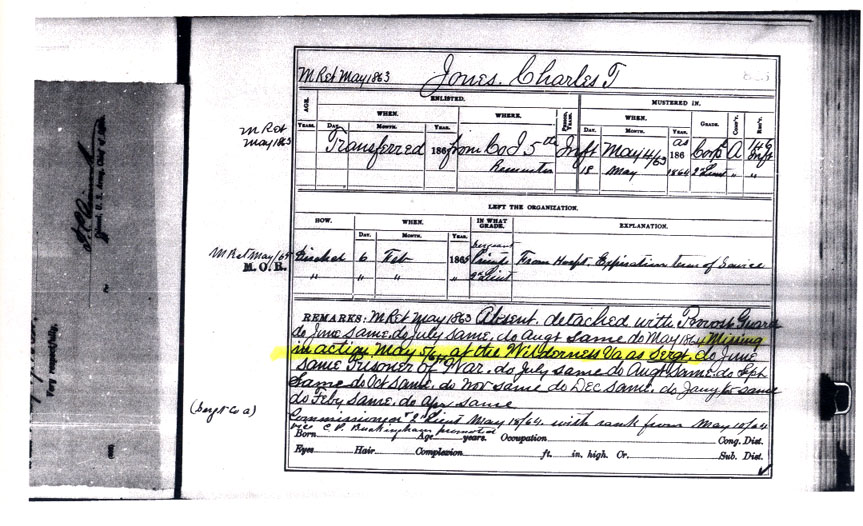 M Ret May 1863 Jones, Charles T
AGE. ENLISTED. MUSTERED IN.
WHEN. WHERE. PERIOD, YEARS. WHEN. GRADE. CO'Y. REG'T.
YEARS. DAY. MONTH. YEAR. DAY. MONTH. YEAR.
M Ret
May 1863
Transferred 186 from Co I 5th Inft May 4/63 as 186 Corpl A 146 Inft
Remuster 18 May 1864 2" Lieut " "
LEFT THE ORGANIZATION.
HOW. WHEN. IN WHAT GRADE. EXPLANATION.
DAY. MONTH. YEAR.
M Ret May/65 Sergeant
M.O.R. Dischd 6 Feb 1865 From Hospt. Expiration term of Service
" " " 2" Lieut
REMARKS: M Ret May 1863 Absent, detached with Provost Guard
do June same. do July same. do Augt same do May 1864 Missing
in action May 5/64 at the Wilderness Va as Sergt. do June
same Prisoner of War. do July same do Augt same do Sept
same do Oct same. do Nov same do Dec same. do Jany 65 same
do Feby same. do Apr same
(Sergt Co A)
Commission of 2" Lieut May 18/64. with rank from May 18/64
vice C. P. Buckingham promoted
Born Age years. Occupation Cong. Dist.
Eyes Hair Complexion ft. in. high. Or. Sub. Dist.
Very respectfully,